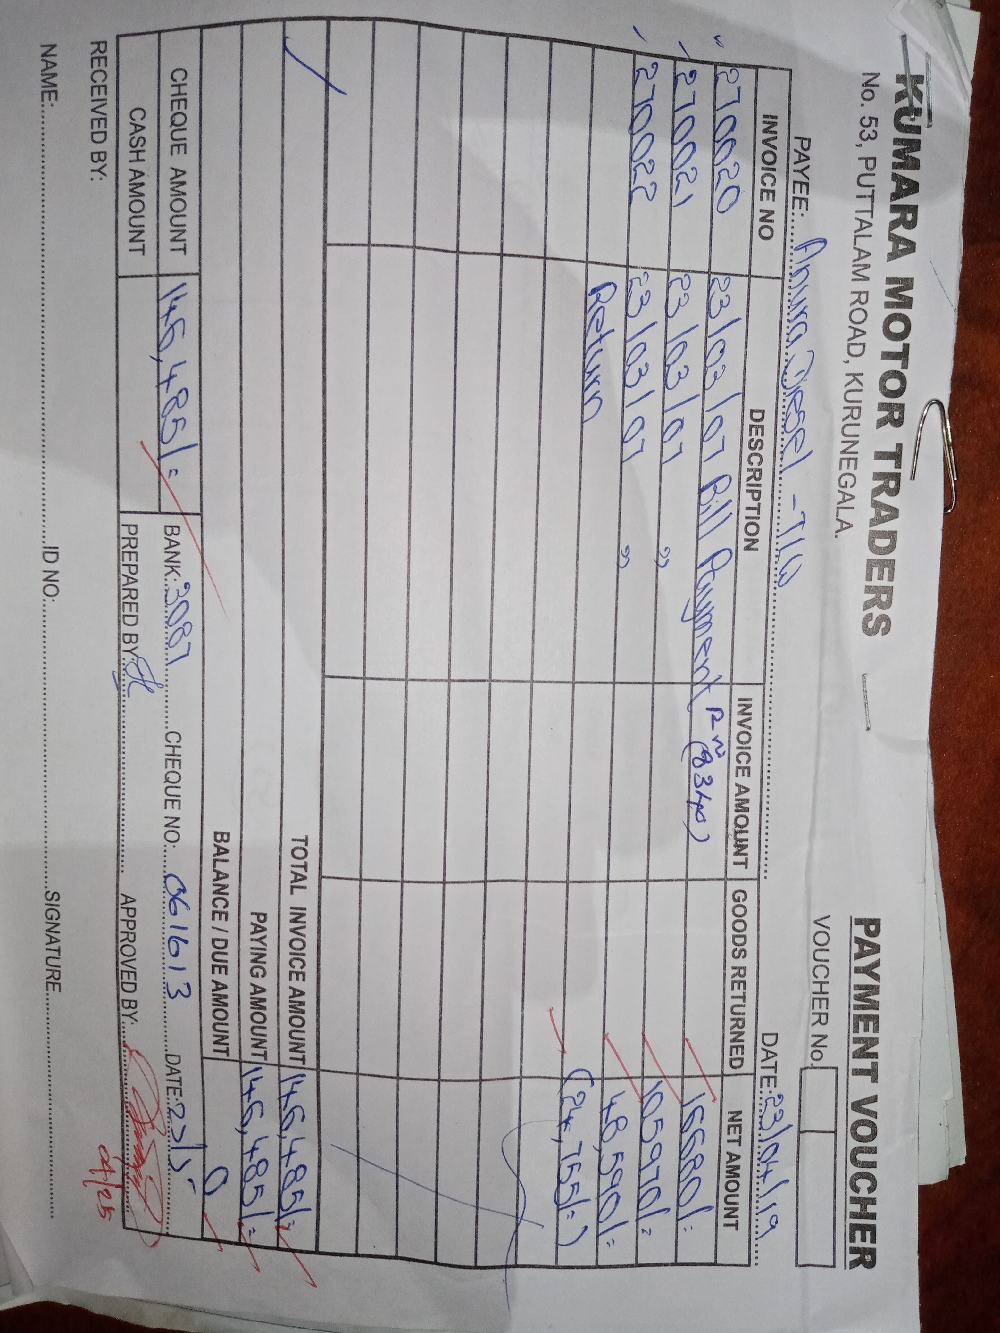 KUMARA MOTOR TRADERS
No. 53, PUTTALAM ROAD, KURUNEGALA.
PAYMENT VOUCHER
VOUCHER No.
PAYEE: Anura Diesel - T/W
DATE: 23/04/19
INVOICE NO DESCRIPTION INVOICE AMOUNT GOODS RETURNED NET AMOUNT
270020 23/03/07 Bill Payment (8340) 16680/=
270021 23/03/07 " 105970/=
270022 23/03/07 " 48,590/=
Return (24,755/=)
TOTAL INVOICE AMOUNT 146,485/=
PAYING AMOUNT 146,485/=
BALANCE / DUE AMOUNT 0
CHEQUE AMOUNT 146,485/= BANK: 3087 CHEQUE NO: 061613 DATE: 23/5
CASH AMOUNT PREPARED BY: APPROVED BY:
04/25
RECEIVED BY:
NAME: ID NO: SIGNATURE